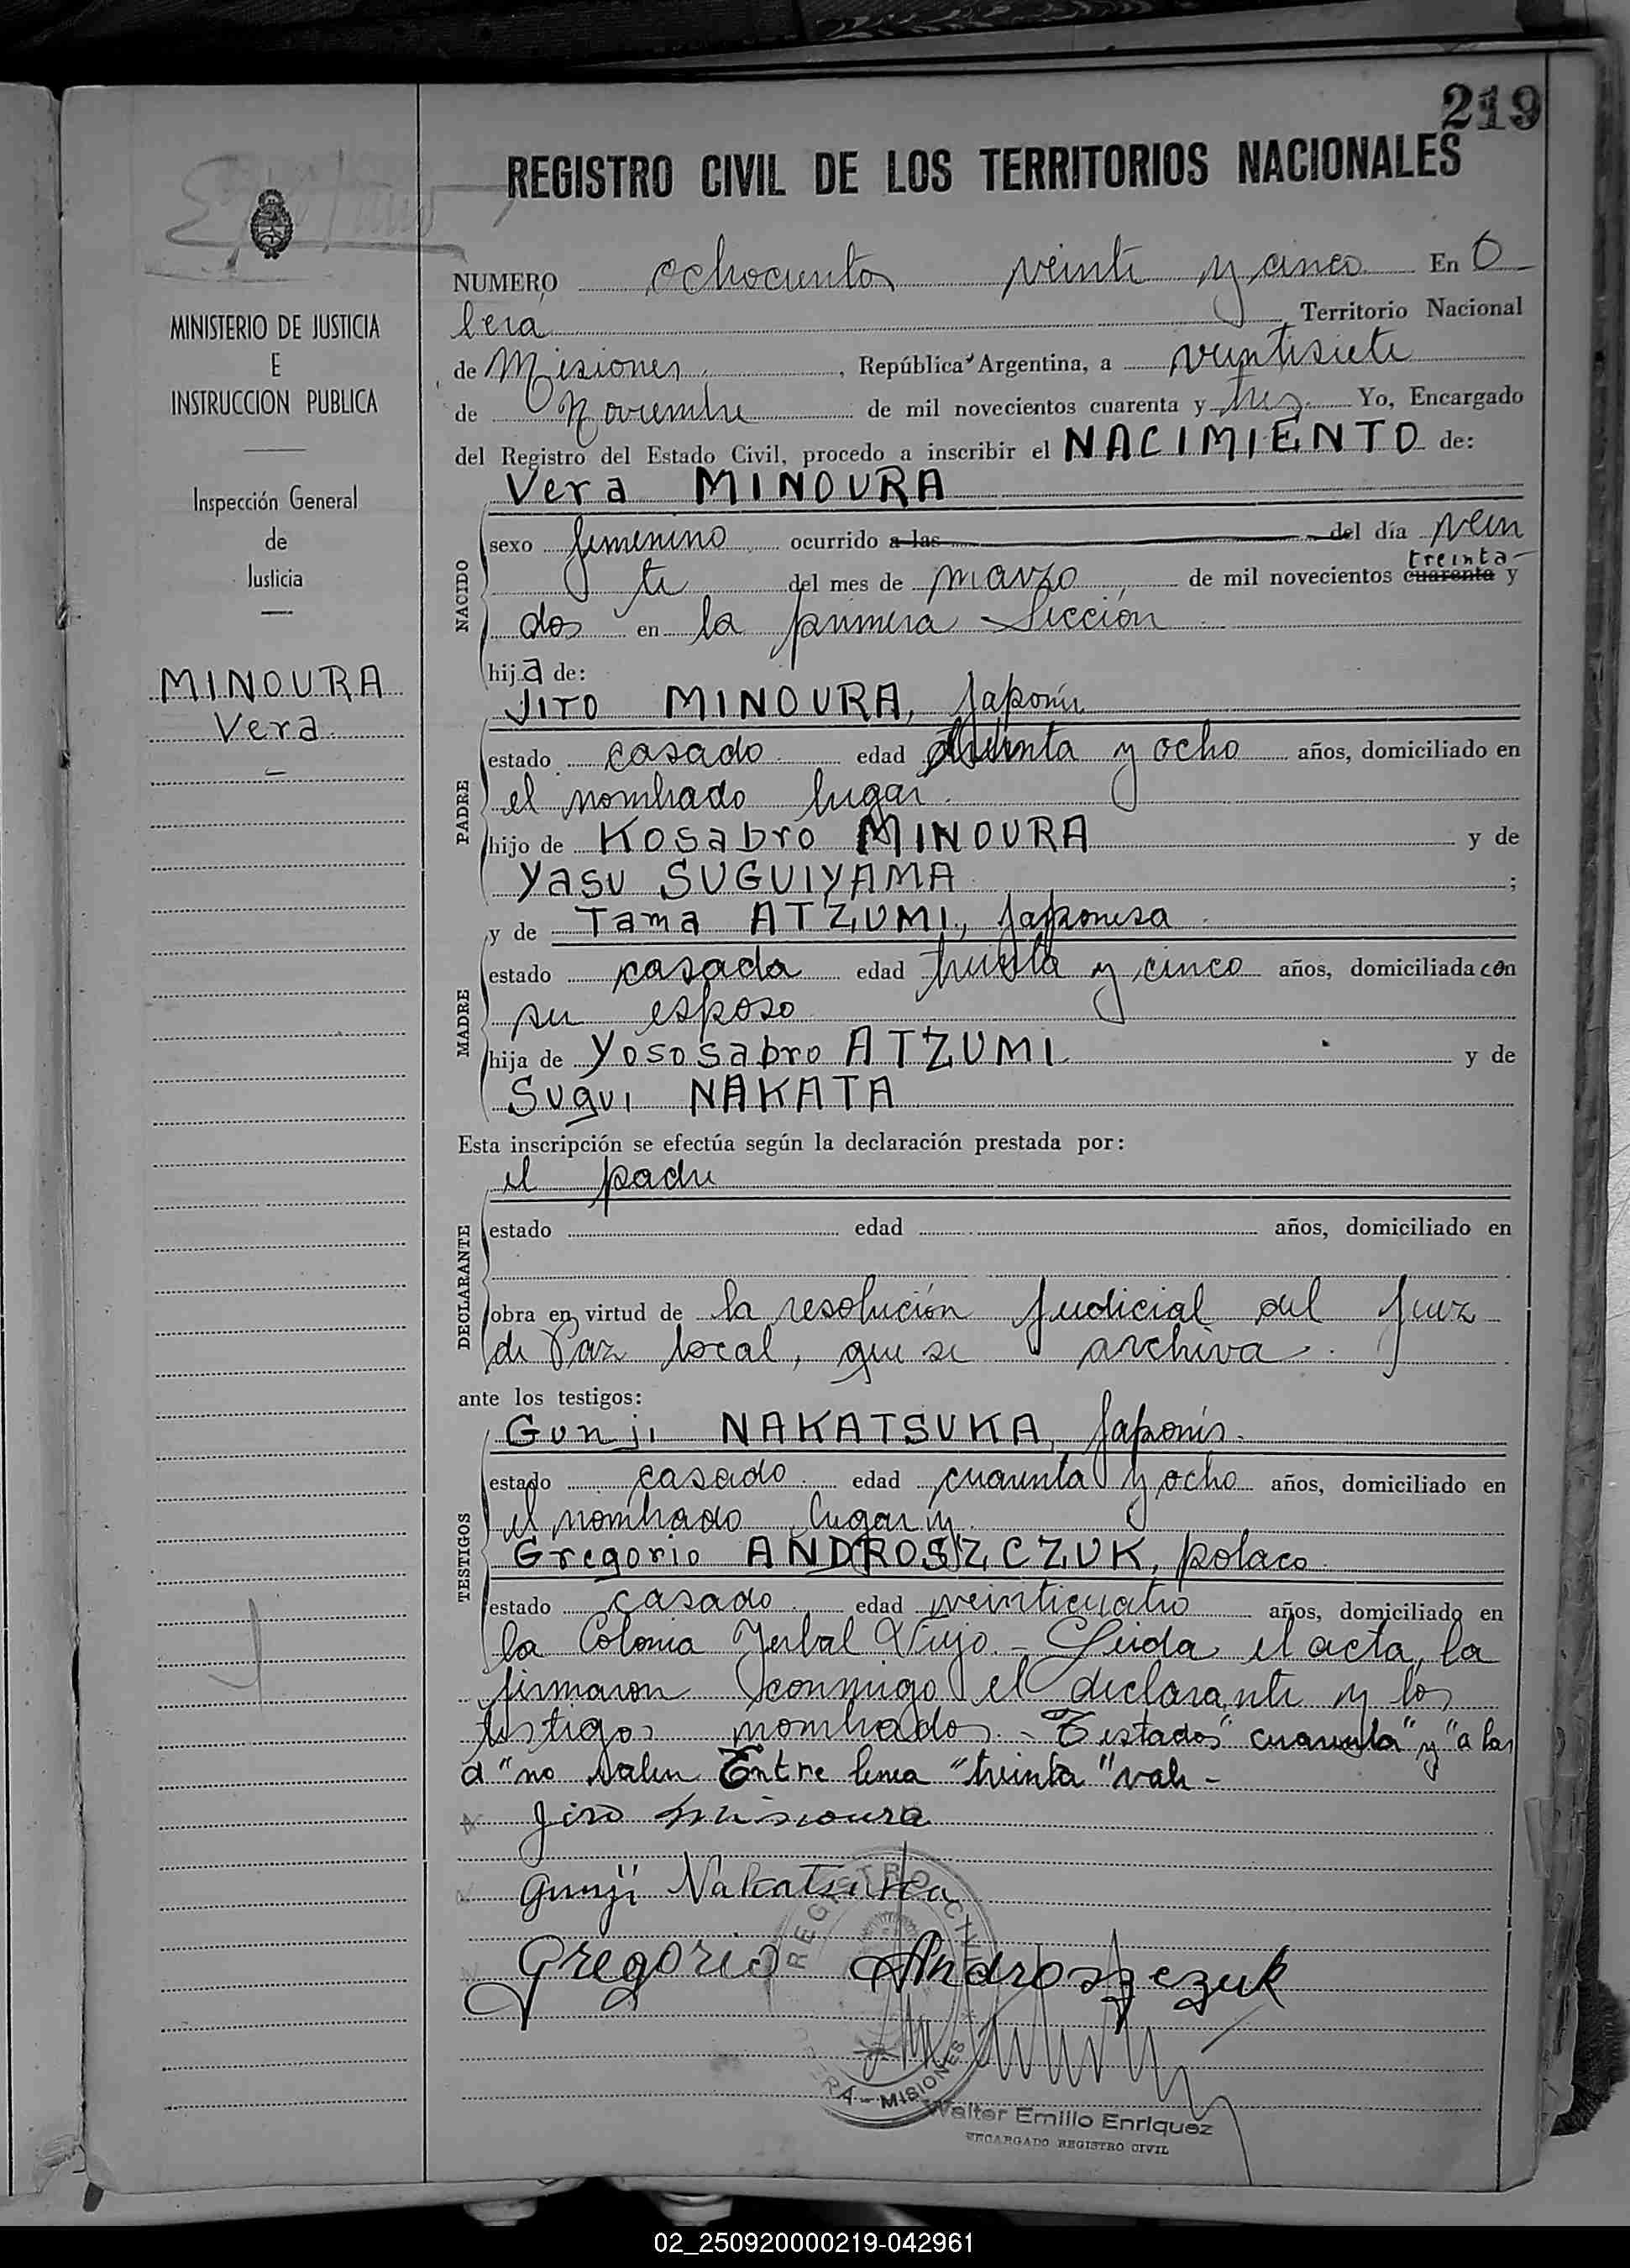 219
REGISTRO CIVIL DE LOS TERRITORIOS NACIONALES
MINISTERIO DE JUSTICIA
E
INSTRUCCION PUBLICA
Inspección General
de
Justicia
MINOURA
Vera
NUMERO ochocientos veinte y cinco En O
bera Territorio Nacional
de Misiones, República Argentina, a veintisiete
de Noviembre de mil novecientos cuarenta y tres. Yo, Encargado
del Registro del Estado Civil, procedo a inscribir el NACIMIENTO de:
Vera MINOURA
NACIDO
sexo femenino ocurrido a las del día vein
treinta
te del mes de marzo, de mil novecientos cuarenta y
dos en la primera Sección
hija de:
PADRE
Jiro MINOURA, japonés
estado casado edad treinta y ocho años, domiciliado en
el nombrado lugar.
hijo de Kosabro MINOURA y de
Yasu SUGUIYAMA ;
MADRE
y de Tama ATZUMI, japonesa
estado casada edad treinta y cinco años, domiciliada con
su esposo
hija de Yososabro ATZUMI y de
Sugui NAKATA
Esta inscripción se efectúa según la declaración prestada por:
DECLARANTE
el padre
estado edad años, domiciliado en
obra en virtud de la resolución judicial del Juez
de Paz local, que se archiva.
ante los testigos:
TESTIGOS
Gunji NAKATSUKA, japonés.
estado casado edad cuarenta y ocho años, domiciliado en
el nombrado lugar y
Gregorio ANDROSZCZUK, polaco
estado casado edad veinticuatro años, domiciliado en
la Colonia Yerbal Viejo.- Leida el acta, la
firmaron conmigo el declarante y los
testigos nombrados.- Testados "cuarenta" y "a las
d" no valen Entre linea "treinta" vale-
Jiro Minoura
Gunji Nakatsuka
Gregorio Androszczuk
REGISTRO CIVIL
OBERA - MISIONES
Walter Emilio Enriquez
ENCARGADO REGISTRO CIVIL
02_250920000219-042961